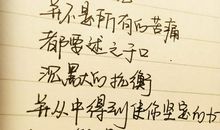 并不是所有的苦痛
都要述之于口
沉默的抗衡
并从中得到使你坚定的力